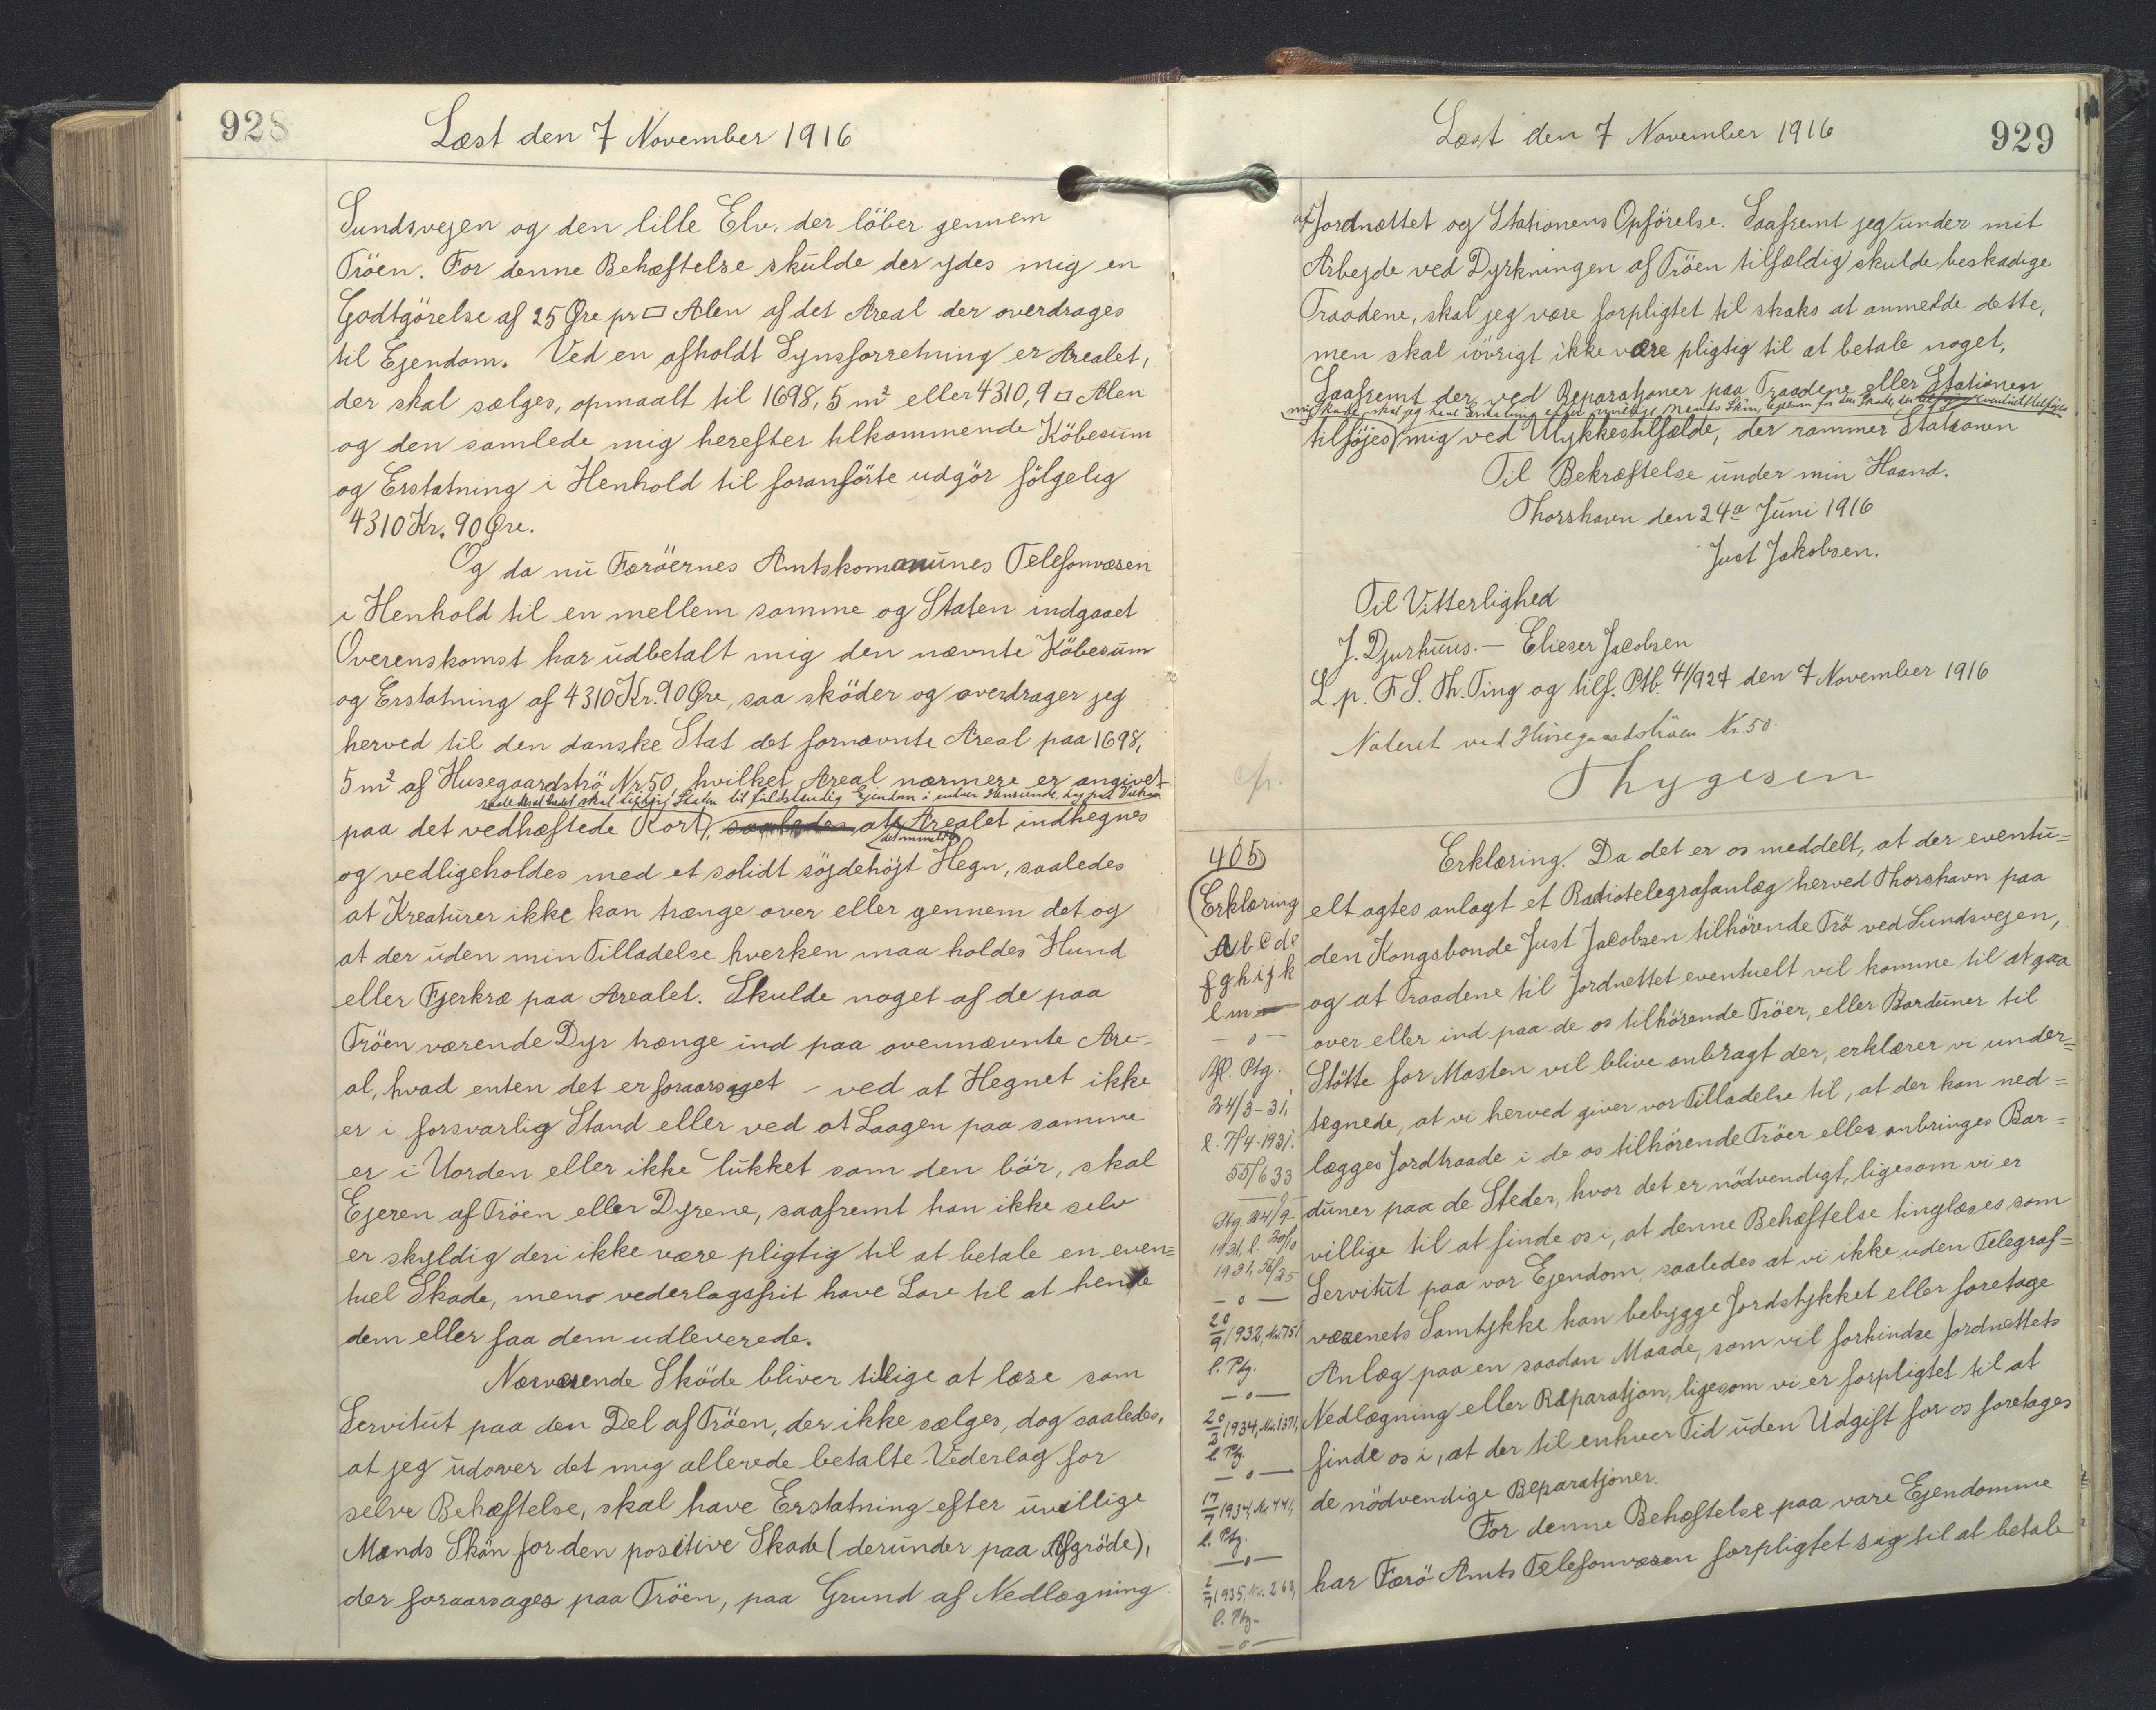 928
Læst den 7 November 1916
Sundsvejen og den lille Elv, der löber gennem
Tröen. For denne Behæftelse skulde der ydes mig en
Godtgörelse af 25 Øre pr □ Alen af det Areal der overdrages
til Ejendom. Ved en afholdt Synsforretning er Arealet,
der skal sælges, opmaalt til 1698,5 m² eller 4310,9 □ Alen
og den samlede mig herefter tilkommende Köbesum
og Erstatning i Henhold til foranförte udgör fölgelig
4310 Kr. 90 Øre.
Og da nu Færöernes Amtskommunes Telefonvæsen
i Henhold til en mellem samme og Staten indgaaet
Overenskomst har udbetalt mig den nævnte Köbesum
og Erstatning af 4310 Kr. 90 Øre, saa sköder og overdrager jeg
herved til den danske Stat det fornævnte Areal paa 1698,
5 m² af Husegaardströ Nr 50, hvilket Areal nærmere er angivet
saaledes at det skal tilhöre Staten til fuldstændig Ejendom i enhver Henseende, dog paa Vilkaar
paa det vedhæftede Kort, saaledes at Arealet indhegnes
det nævnte
og vedligeholdes med et solidt söjdehöjt Hegn, saaledes
at Kreaturer ikke kan trænge over eller gennem det og
at der uden min Tilladelse hverken maa holdes Hund
eller Fjerkræ paa Arealet. Skulde noget af de paa
Tröen værende Dyr trænge ind paa ovennævnte Are-
al, hvad enten det er foraarsaget - ved at Hegnet ikke
er i forsvarlig Stand eller ved at Laagen paa samme
er i Uorden eller ikke lukket som den bör, skal
Ejeren af Tröen eller Dyrene, saafremt han ikke selv
er skyldig deri ikke være pligtig til at betale en even=
tuel Skade, men vederlagsfrit have Lov til at hente
dem eller faa dem udleverede.
Nærværende Sköde bliver tillige at læse som
Servitut paa den Del af Tröen, der ikke sælges, dog saaledes,
at jeg udover det mig allerede betalte Vederlag for
selve Behæftelse, skal have Erstatning efter uvillige
Mænds Skön for den positive Skade (derunder paa Afgröde),
der foraarsages paa Tröen, paa Grund af Nedlægning
Læst den 7 November 1916
929
af Jordnættet og Stationens Opförelse. Saafremt jeg under mit
Arbejde ved Dyrkningen af Tröen tilfældig skulde beskadige
Traadene, skal jeg være forpligtet til straks at anmelde dette,
men skal iövrigt ikke være pligtig til at betale noget,
Saafremt der ved Reparationer paa Traadene eller Stationen
skal jeg have Erstatning efter uvillige Mænds Skön, ligesom for den Skade der
tilföjes mig ved Ulykkestilfælde, der rammer Stationen
Til Bekræftelse under min Haand.
Thorshavn den 24de Juni 1916
Just Jakobsen.
Til Vitterlighed
J. Djurhuus. — Elieser Jacobsen
L. p. F. S. Th. Ting og tilf. Ptb. 41/927 den 7 November 1916
Noteret ved Husegaardströen Nr. 50
Thygesen
cfr.
405
(Erklæring
a b c d e
f g h i j k
l m
— o —
Afl. Ptg.
24/3-31,
l. 7/4-1931.
55/633
Ptg. 24/9-
1931, l. 20/10
1931, 56/25
— o —
20/9 1932, Nr. 751
l. Ptg.
— o —
20/3 1934, Nr. 1371,
l. Ptg.
— o —
17/7 1934, Nr. 441,
l. Ptg.
— o —
2/7 1935, Nr. 263,
l. Ptg.
— o —
Erklæring. Da det er os meddelt, at der eventu=
elt agtes anlagt et Radiotelegrafanlæg herved Thorshavn paa
den Kongsbonde Just Jacobsen tilhörende Trö ved Sundsvejen,
og at Traadene til Jordnettet eventuelt vil komme til at gaa
over eller ind paa de os tilhörende Tröer, eller Barduner til
Stötte for Masten vil blive anbragt der, erklærer vi under=
tegnede, at vi herved giver vor Tilladelse til, at der kan ned=
lægges Jordtraade i de os tilhörende Tröer eller anbringes Bar=
duner paa de Steder, hvor det er nödvendigt, ligesom vi er
villige til at finde os i, at denne Behæftelse tinglæses som
Servitut paa vor Ejendom, saaledes at vi ikke uden Telegraf=
væsenets Samtykke kan bebygge Jordstykket eller foretage
Anlæg paa en saadan Maade, som vil forhindre Jordnettets
Nedlægning eller Reparatjon, ligesom vi er forpligtet til at
finde os i, at der til enhver Tid uden Udgift for os foretages
de nödvendige Reparatjoner.
For denne Behæftelse paa vare Ejendomme
har Færö Amts Telefonvæsen forpligtet sig til at betale